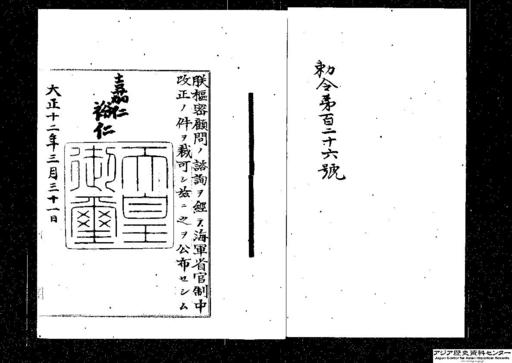 勅令第百二十六號
朕樞密顧問ノ諮詢ヲ經テ海軍省官制中
改正ノ件ヲ裁可シ茲ニ之ヲ公布セシム
嘉仁
裕仁
天皇
御璽
大正十二年三月三十一日
アジア歴史資料センター
Japan Center for Asian Historical Records